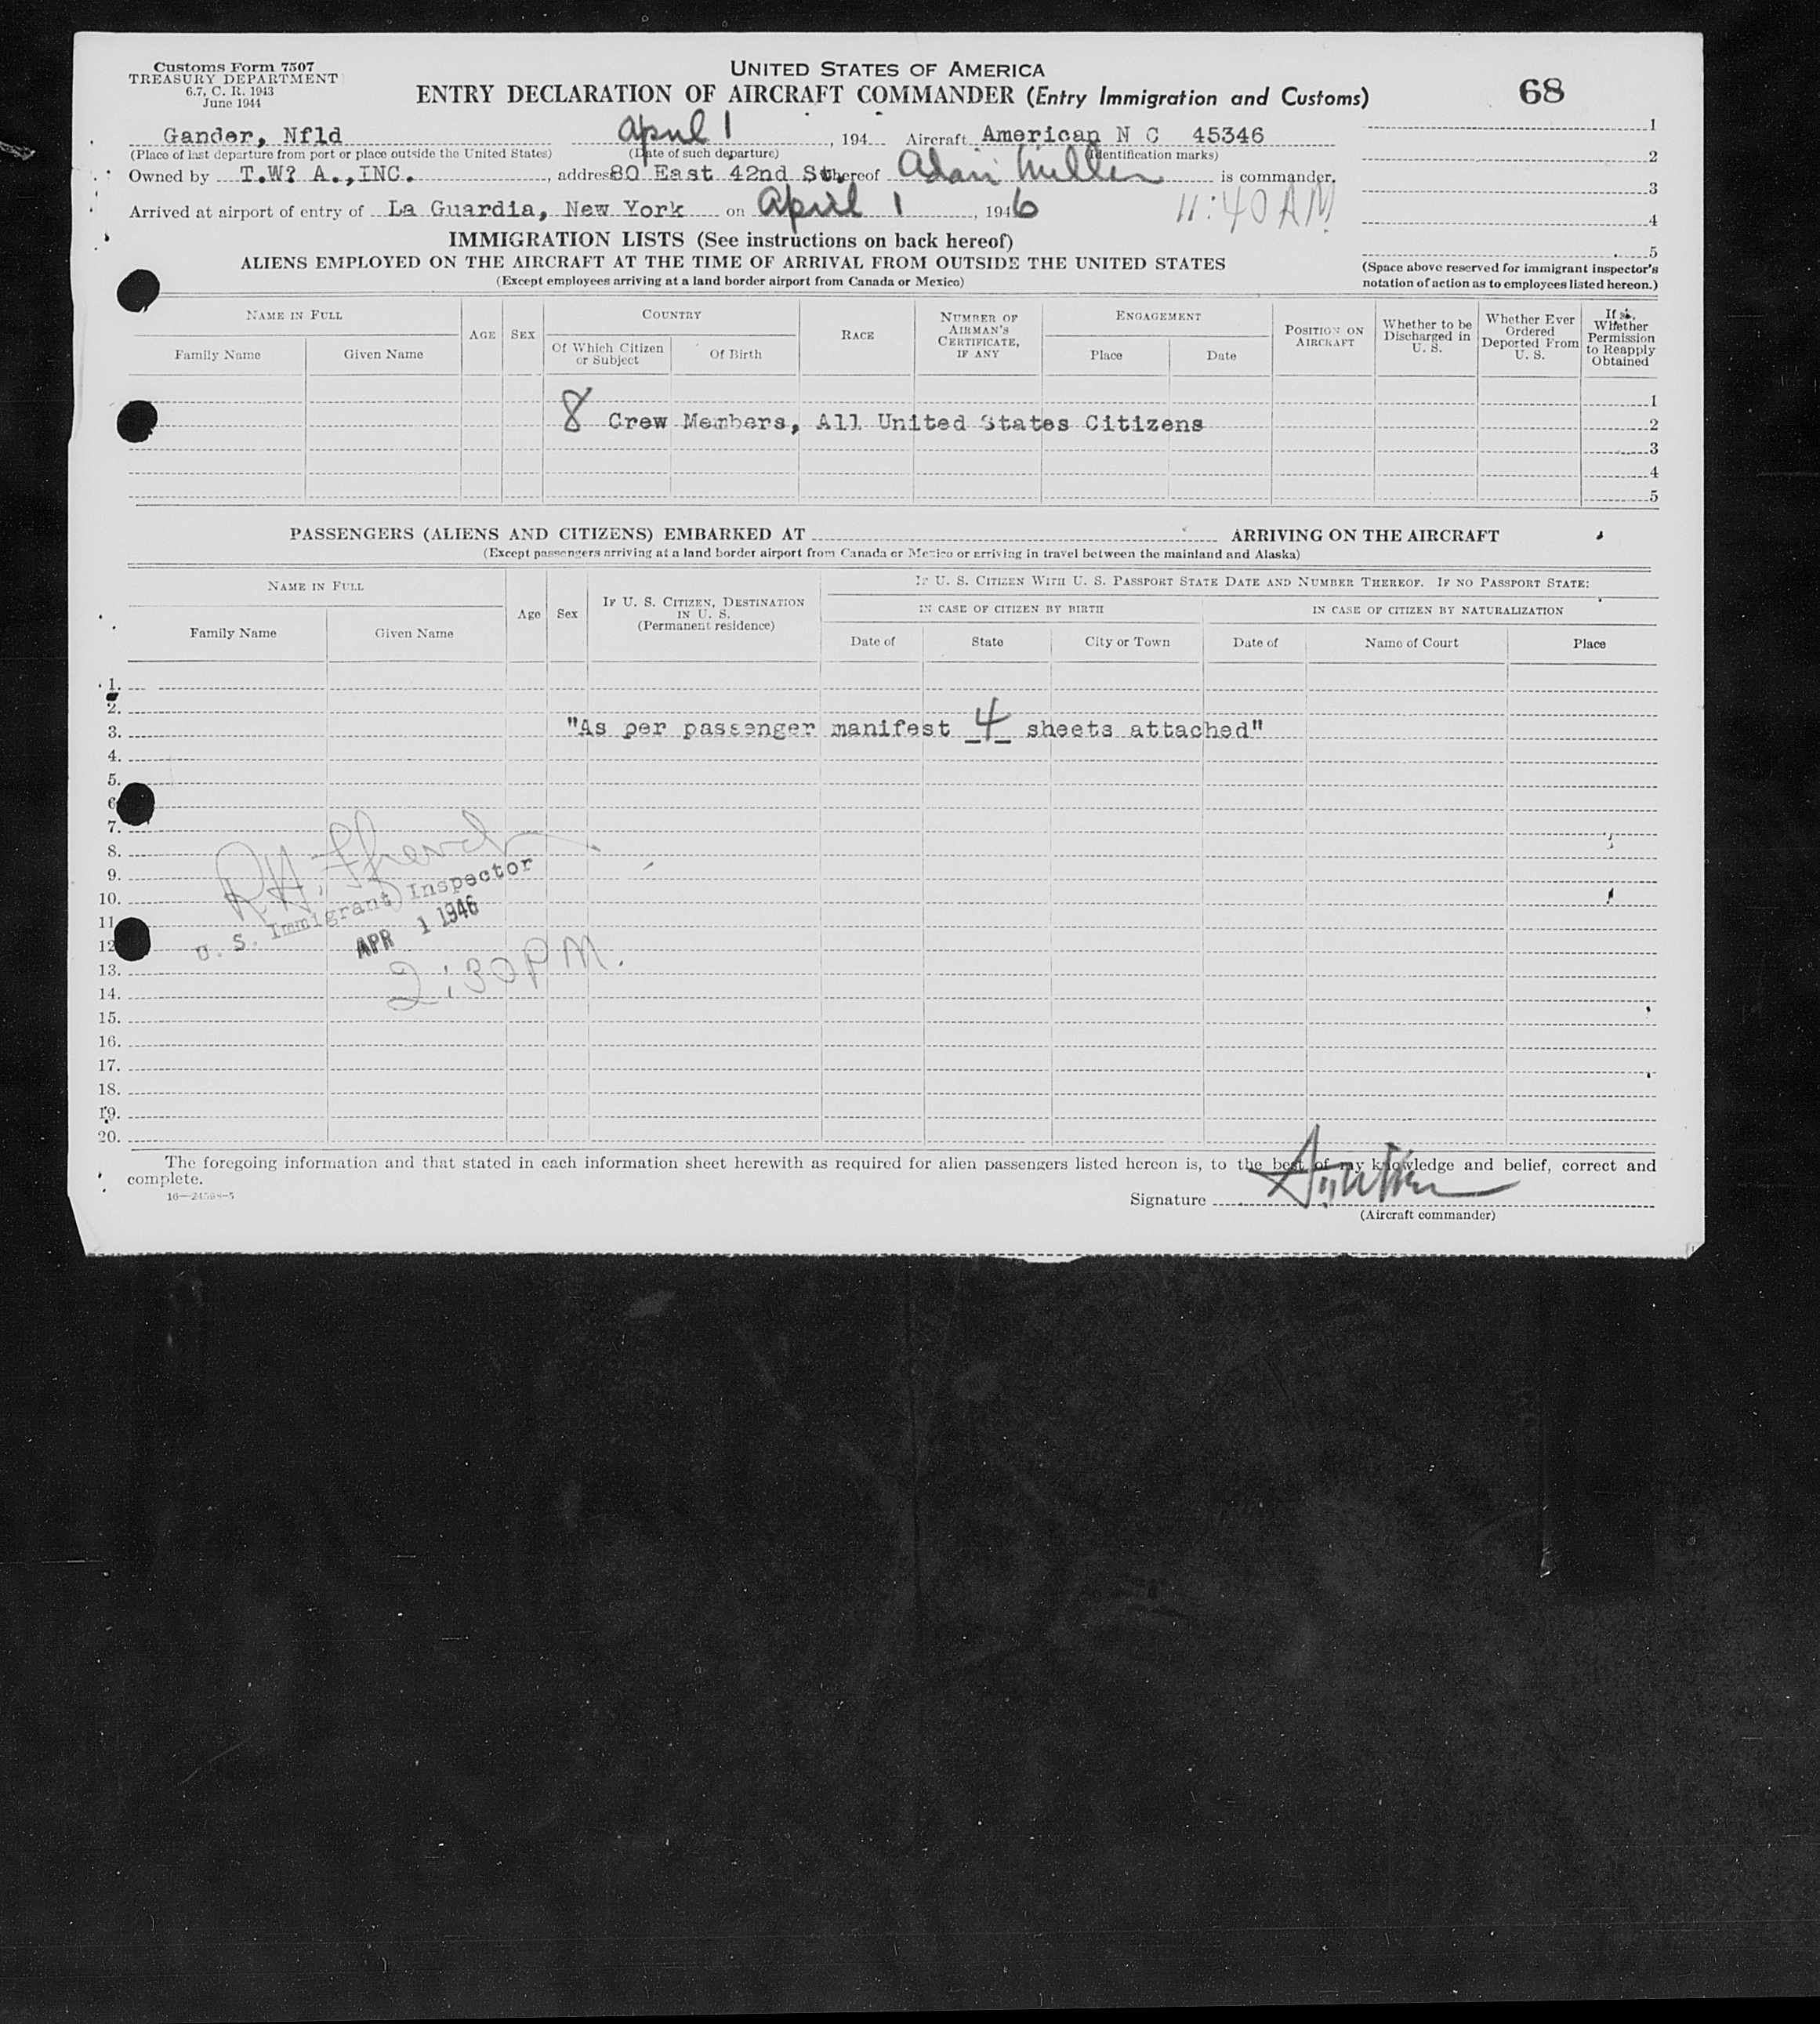 Customs Form 7507
TREASURY DEPARTMENT
6.7, C. R. 1943
June 1944
UNITED STATES OF AMERICA
ENTRY DECLARATION OF AIRCRAFT COMMANDER (Entry Immigration and Customs)
68
Gander, Nfld April 1, 194 Aircraft American N C 45346
(Place of last departure from port or place outside the United States) (Date of such departure) (Identification marks)
Owned by T.W? A.,INC., address 80 East 42nd St. thereof Miller is commander.
Arrived at airport of entry of La Guardia, New York on April 1, 1946 11:40 AM
1
2
3
4
5
(Space above reserved for immigrant inspector's
notation of action as to employees listed hereon.)
IMMIGRATION LISTS (See instructions on back hereof)
ALIENS EMPLOYED ON THE AIRCRAFT AT THE TIME OF ARRIVAL FROM OUTSIDE THE UNITED STATES
(Except employees arriving at a land border airport from Canada or Mexico)
NAME IN FULL
Family Name
Given Name
AGE
SEX
COUNTRY
Of Which Citizen
or Subject
Of Birth
RACE
NUMBER OF
AIRMAN'S
CERTIFICATE,
IF ANY
ENGAGEMENT
Place
Date
POSITION ON
AIRCRAFT
Whether to be
Discharged in
U. S.
Whether Ever
Ordered
Deported From
U. S.
If so,
Whether
Permission
to Reapply
Obtained
1
8 Crew Members, All United States Citizens 2
3
4
5
PASSENGERS (ALIENS AND CITIZENS) EMBARKED AT ARRIVING ON THE AIRCRAFT
(Except passengers arriving at a land border airport from Canada or Mexico or arriving in travel between the mainland and Alaska)
NAME IN FULL
Family Name
Given Name
Age
Sex
IF U. S. CITIZEN, DESTINATION
IN U. S.
(Permanent residence)
IF U. S. CITIZEN WITH U. S. PASSPORT STATE DATE AND NUMBER THEREOF. IF NO PASSPORT STATE:
IN CASE OF CITIZEN BY BIRTH
Date of
State
City or Town
IN CASE OF CITIZEN BY NATURALIZATION
Date of
Name of Court
Place
1.
2.
3. "As per passenger manifest 4 sheets attached"
4.
5.
6
7.
8.
9.
10.
11
12
13.
14.
15.
16.
17.
18.
19.
20.
R.H.
U. S. Immigrant Inspector
APR 1 1946
2:30 P.M.
The foregoing information and that stated in each information sheet herewith as required for alien passengers listed hereon is, to the best of my knowledge and belief, correct and
complete.
Signature
(Aircraft commander)